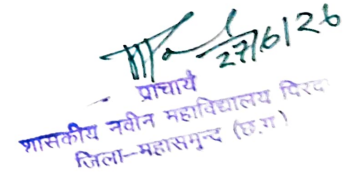 27/6/26
प्राचार्य
शासकीय नवीन महाविद्यालय पिरदा
जिला-महासमुन्द (छ.ग)